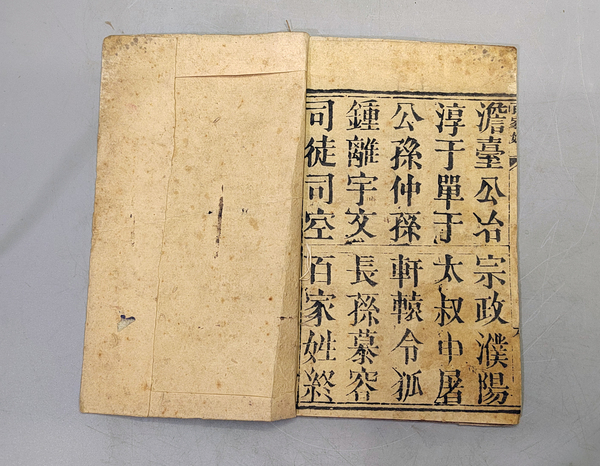 百家姓
澹臺公冶宗政濮陽
淳于單于太叔申屠
公孫仲孫軒轅令狐
鍾離宇文長孫慕容
司徒司空百家姓終